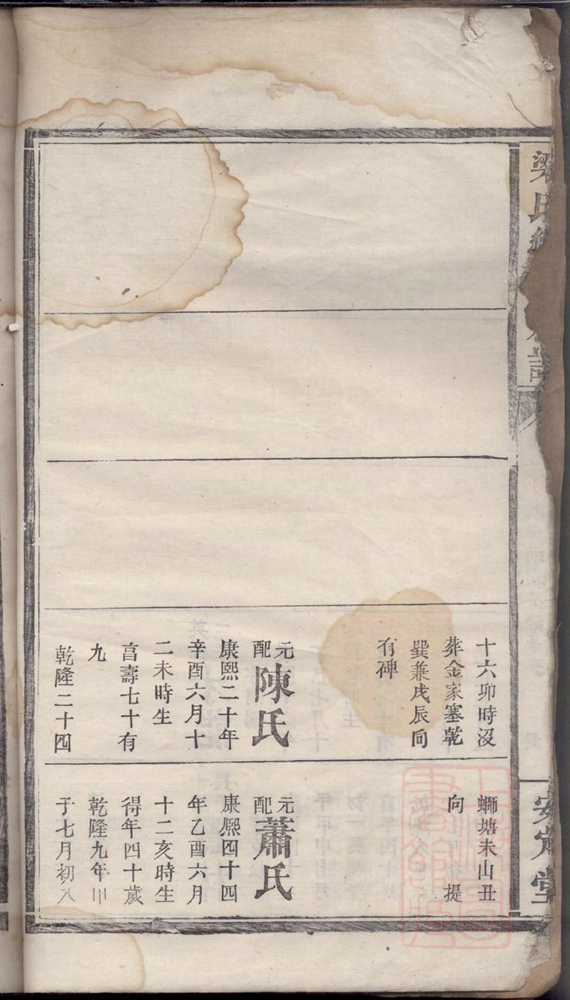 梁氏
譜
安定堂
十六卯時沒
葬金家塞乾
巽兼戌辰向
有碑
元配陳氏
康熙二十年
辛酉六月十
二未時生
享壽七十有
九
乾隆二十四
螄塘未山丑
向 提
元配蕭氏
康熙四十四
年乙酉六月
十二亥時生
得年四十歲
乾隆九年甲
子七月初八